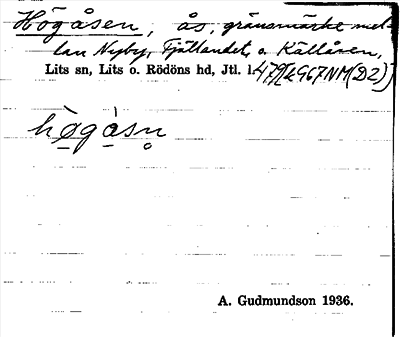 Högåsen, ås, gränsmärke mel-
lan Nyby, Fjällandet, o. Källåsen,
Lits sn, Lits o. Rödöns hd, Jtl.
hø̀gàsn̥
A. Gudmundson 1936.